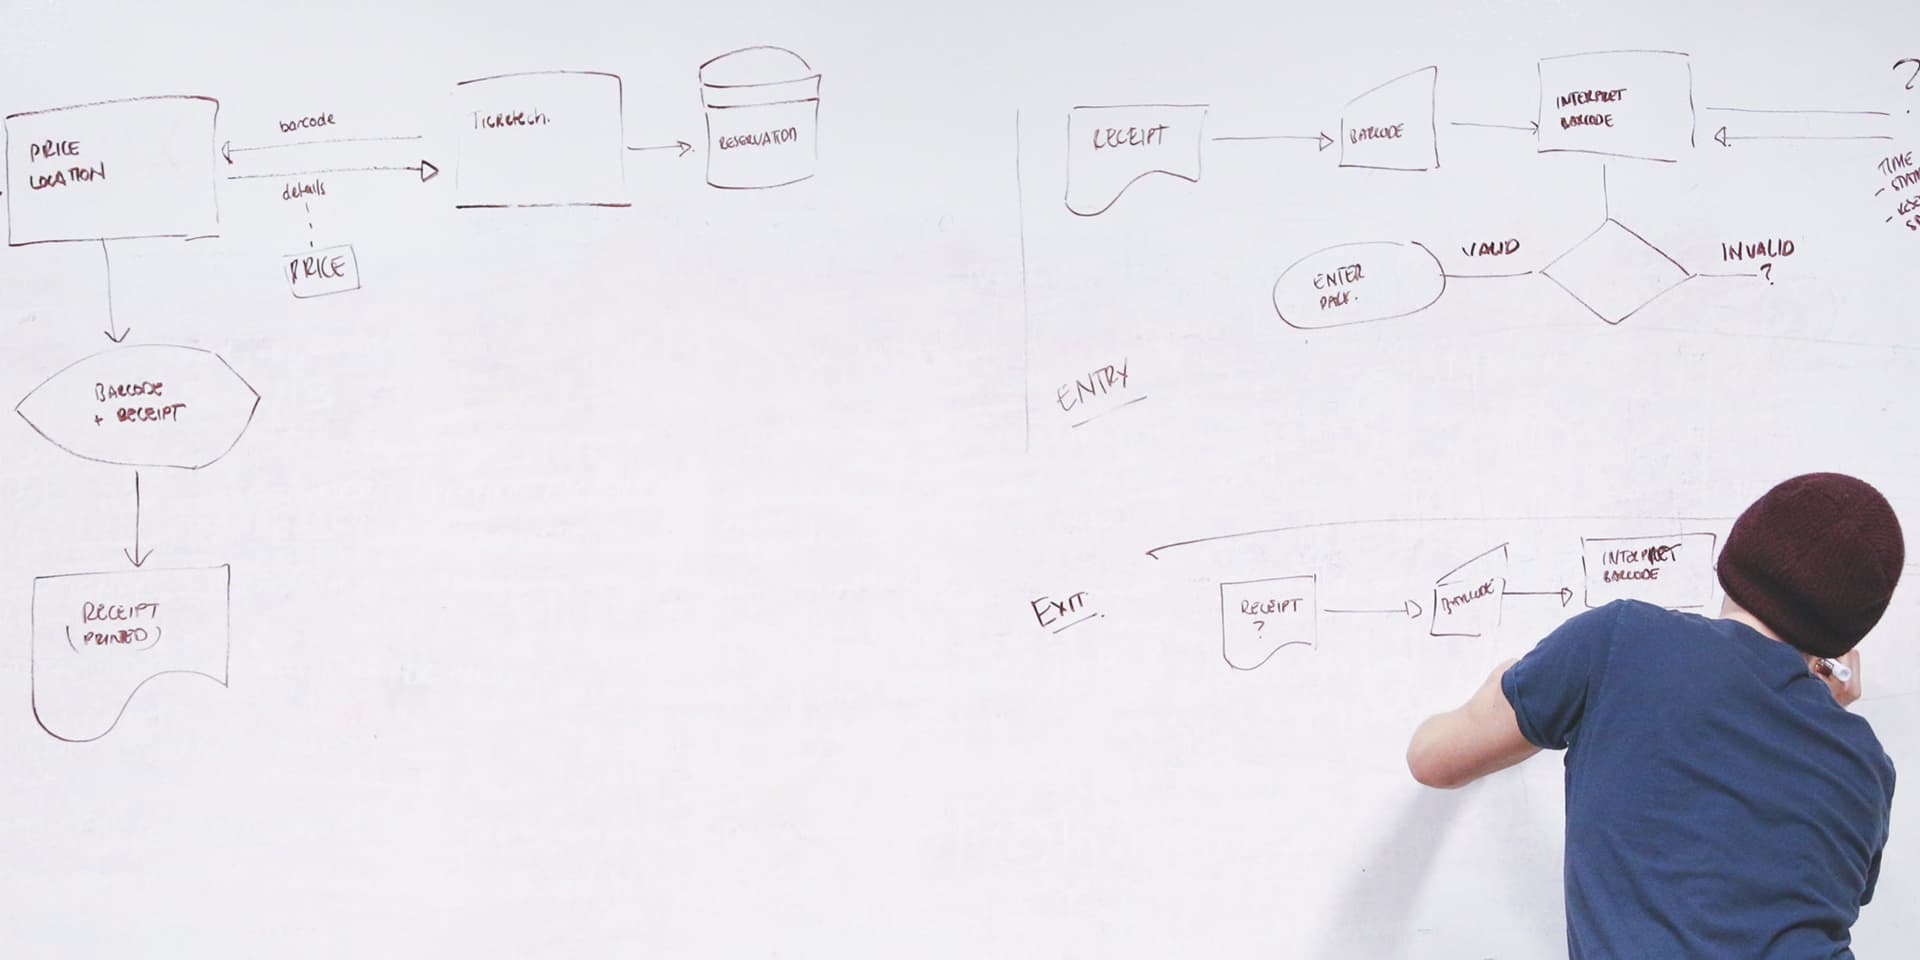 PRICE
LOCATION
barcode
details
PRICE
Ticketech.
RESERVATION
BARCODE
+ RECEIPT
RECEIPT
(PRINTED)
RECEIPT
BARCODE
INTERPRET
BARCODE
?
TIME
VALID
INVALID
?
ENTER
PARK.
ENTRY
EXIT.
RECEIPT
?
BARCODE
INTERPRET
BARCODE